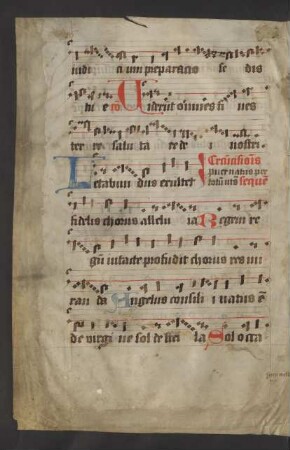 iudicium preparacio sedis
Viderūt omnes fines
terre salutare dei nostri
Letabundus exultet
fidelis chorus alleluia Regem re
gū intacte profudit chorus res mi
randa Angelus consilii natus ē
de virgine sol de stella Sol occa